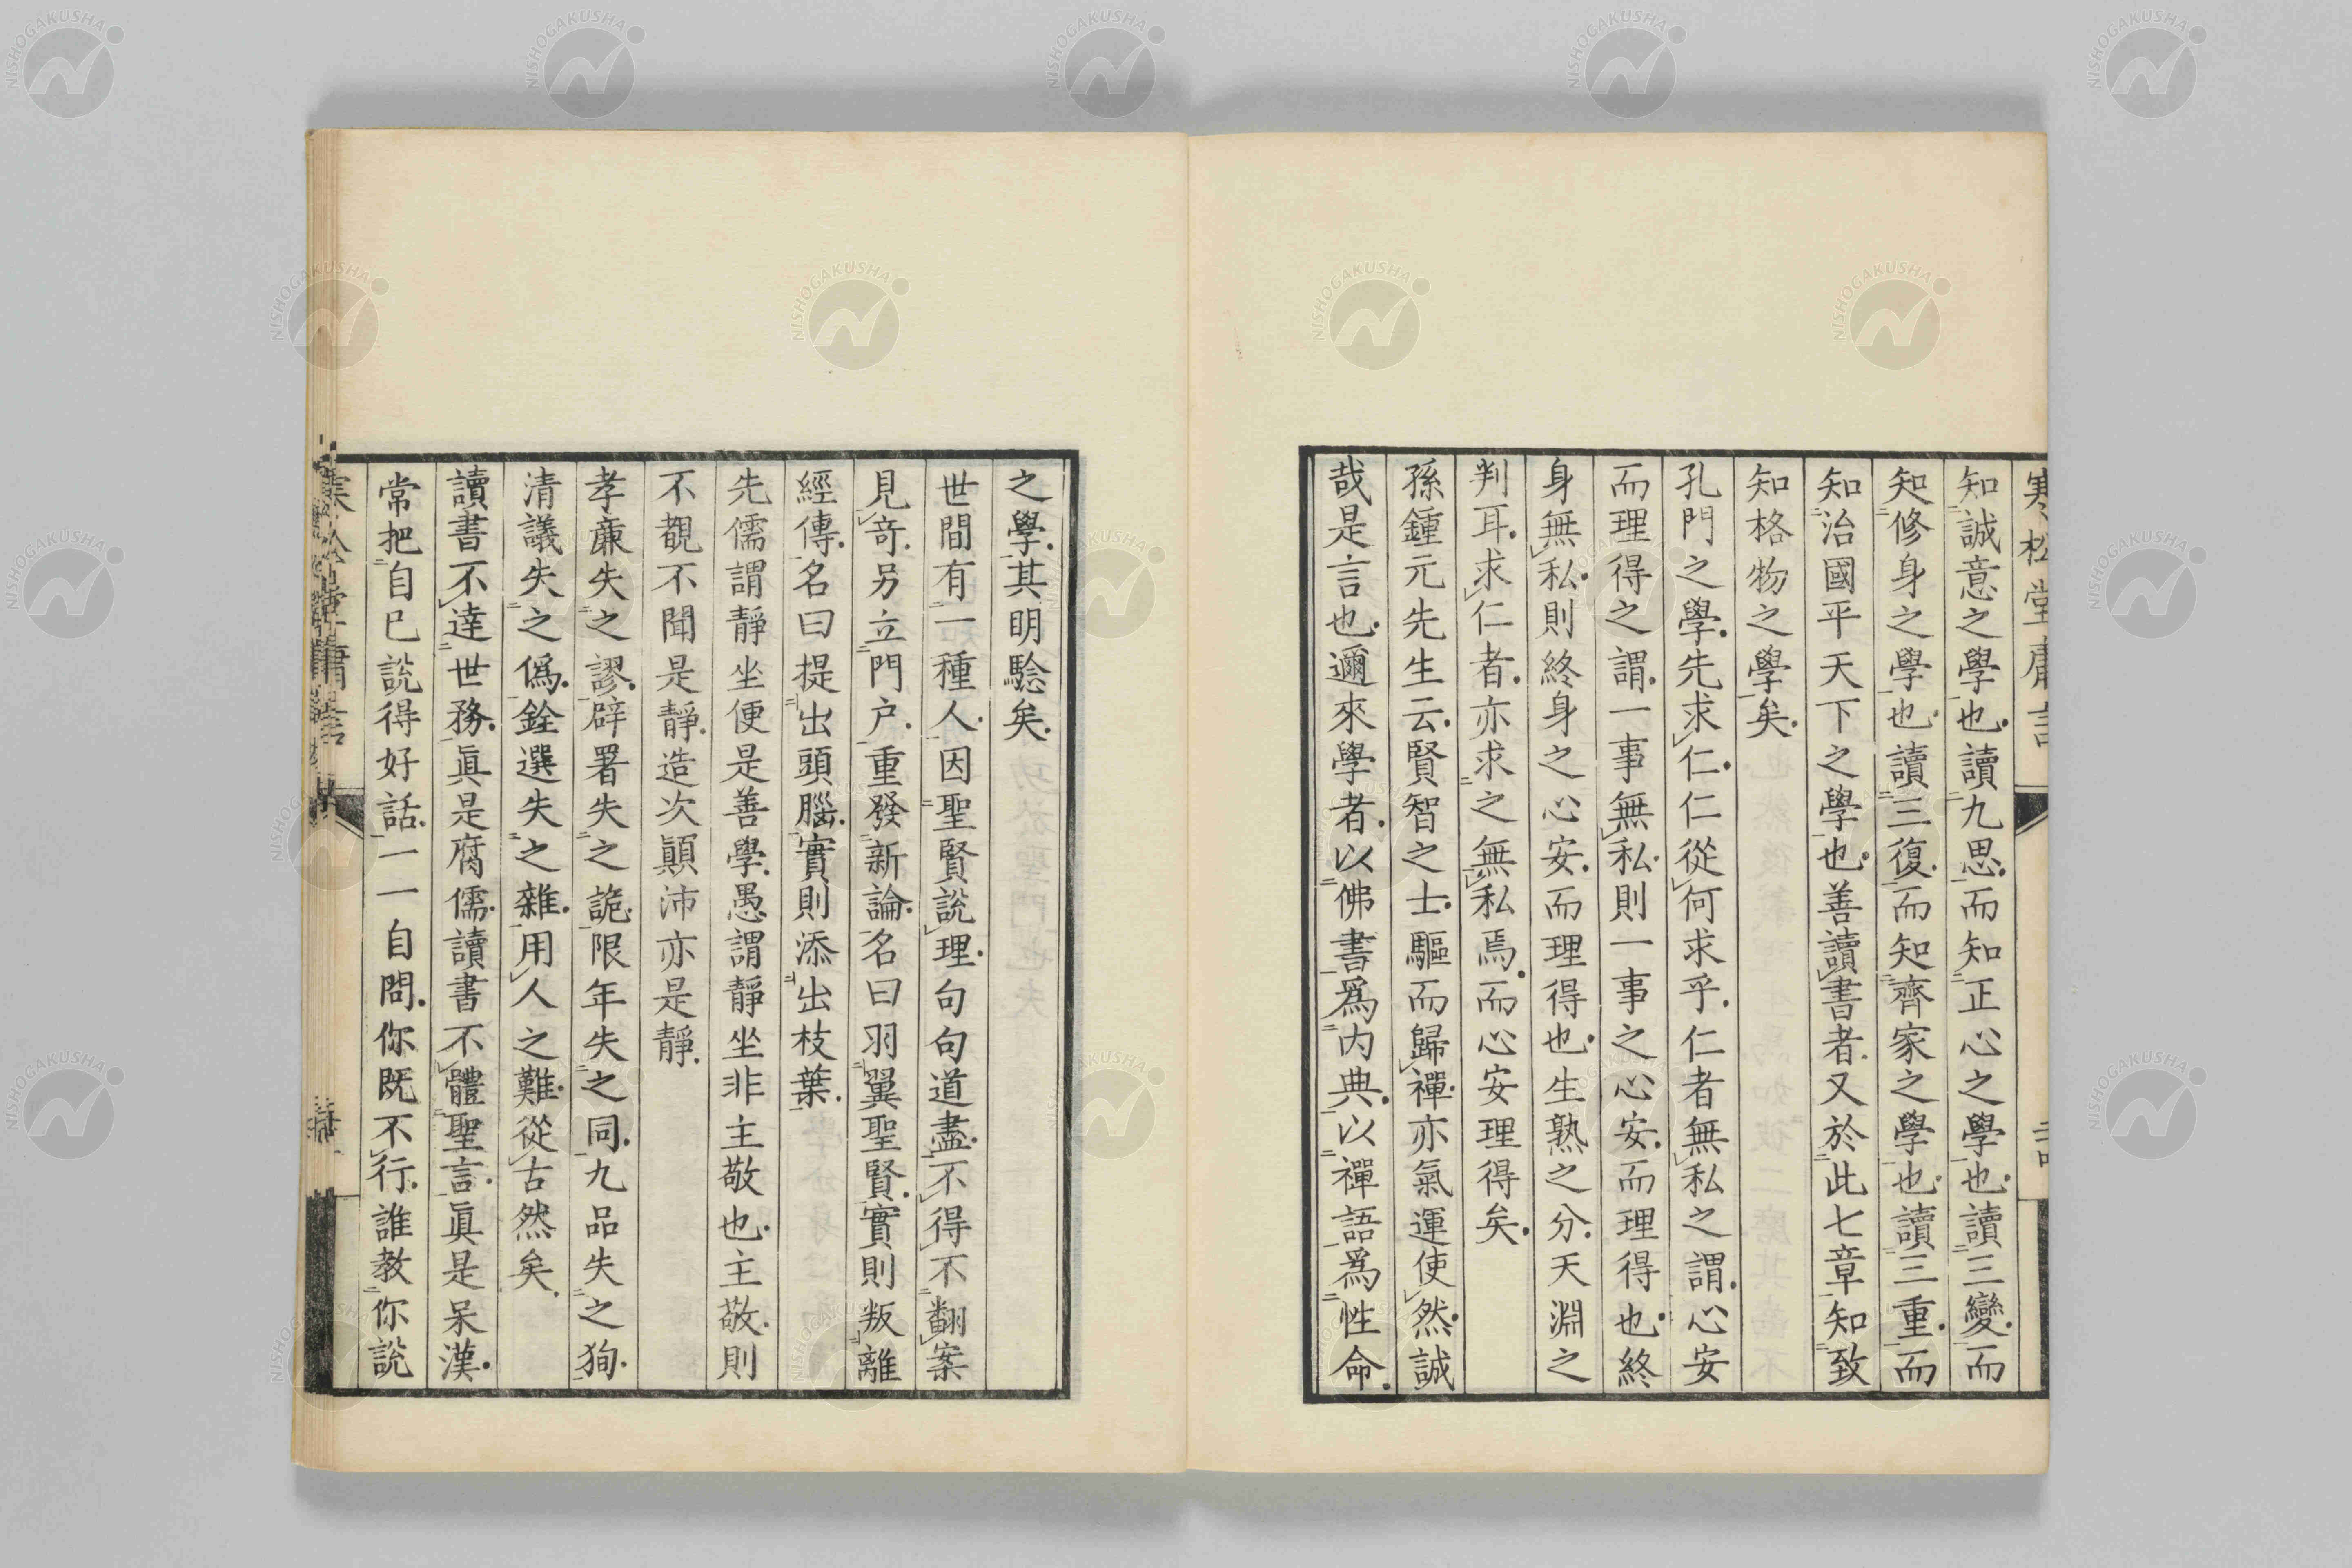 寒松堂庸言
知誠意之學也讀九思而知正心之學也讀三變而
知修身之學也讀三復而知齊家之學也讀三重而
知治國平天下之學也善讀書者又於此七章知致
知格物之學矣
孔門之學先求仁仁從何求乎仁者無私之謂心安
而理得之謂一事無私則一事之心安而理得也終
身無私則終身之心安而理得也生熟之分天淵之
判耳求仁者亦求之無私焉而心安理得矣
孫鍾元先生云賢智之士驅而歸禪亦氣運使然誠
哉是言也邇來學者以佛書爲内典以禪語爲性命
之學其明騐矣
世間有一種人因聖賢說理句句道盡不得不翻案
見竒另立門户重發新論名曰羽翼聖賢實則叛離
經傳名曰提出頭腦實則添出枝葉
先儒謂靜坐便是善學愚謂靜坐非主敬也主敬則
不覩不聞是靜造次顚沛亦是靜
孝亷失之謬辟署失之詭限年失之同九品失之狥
清議失之僞銓選失之雜用人之難從古然矣
讀書不達世務眞是腐儒讀書不體聖言眞是呆漢
常把自已說得好話一一自問你既不行誰教你說
NISHOGAKUSHA